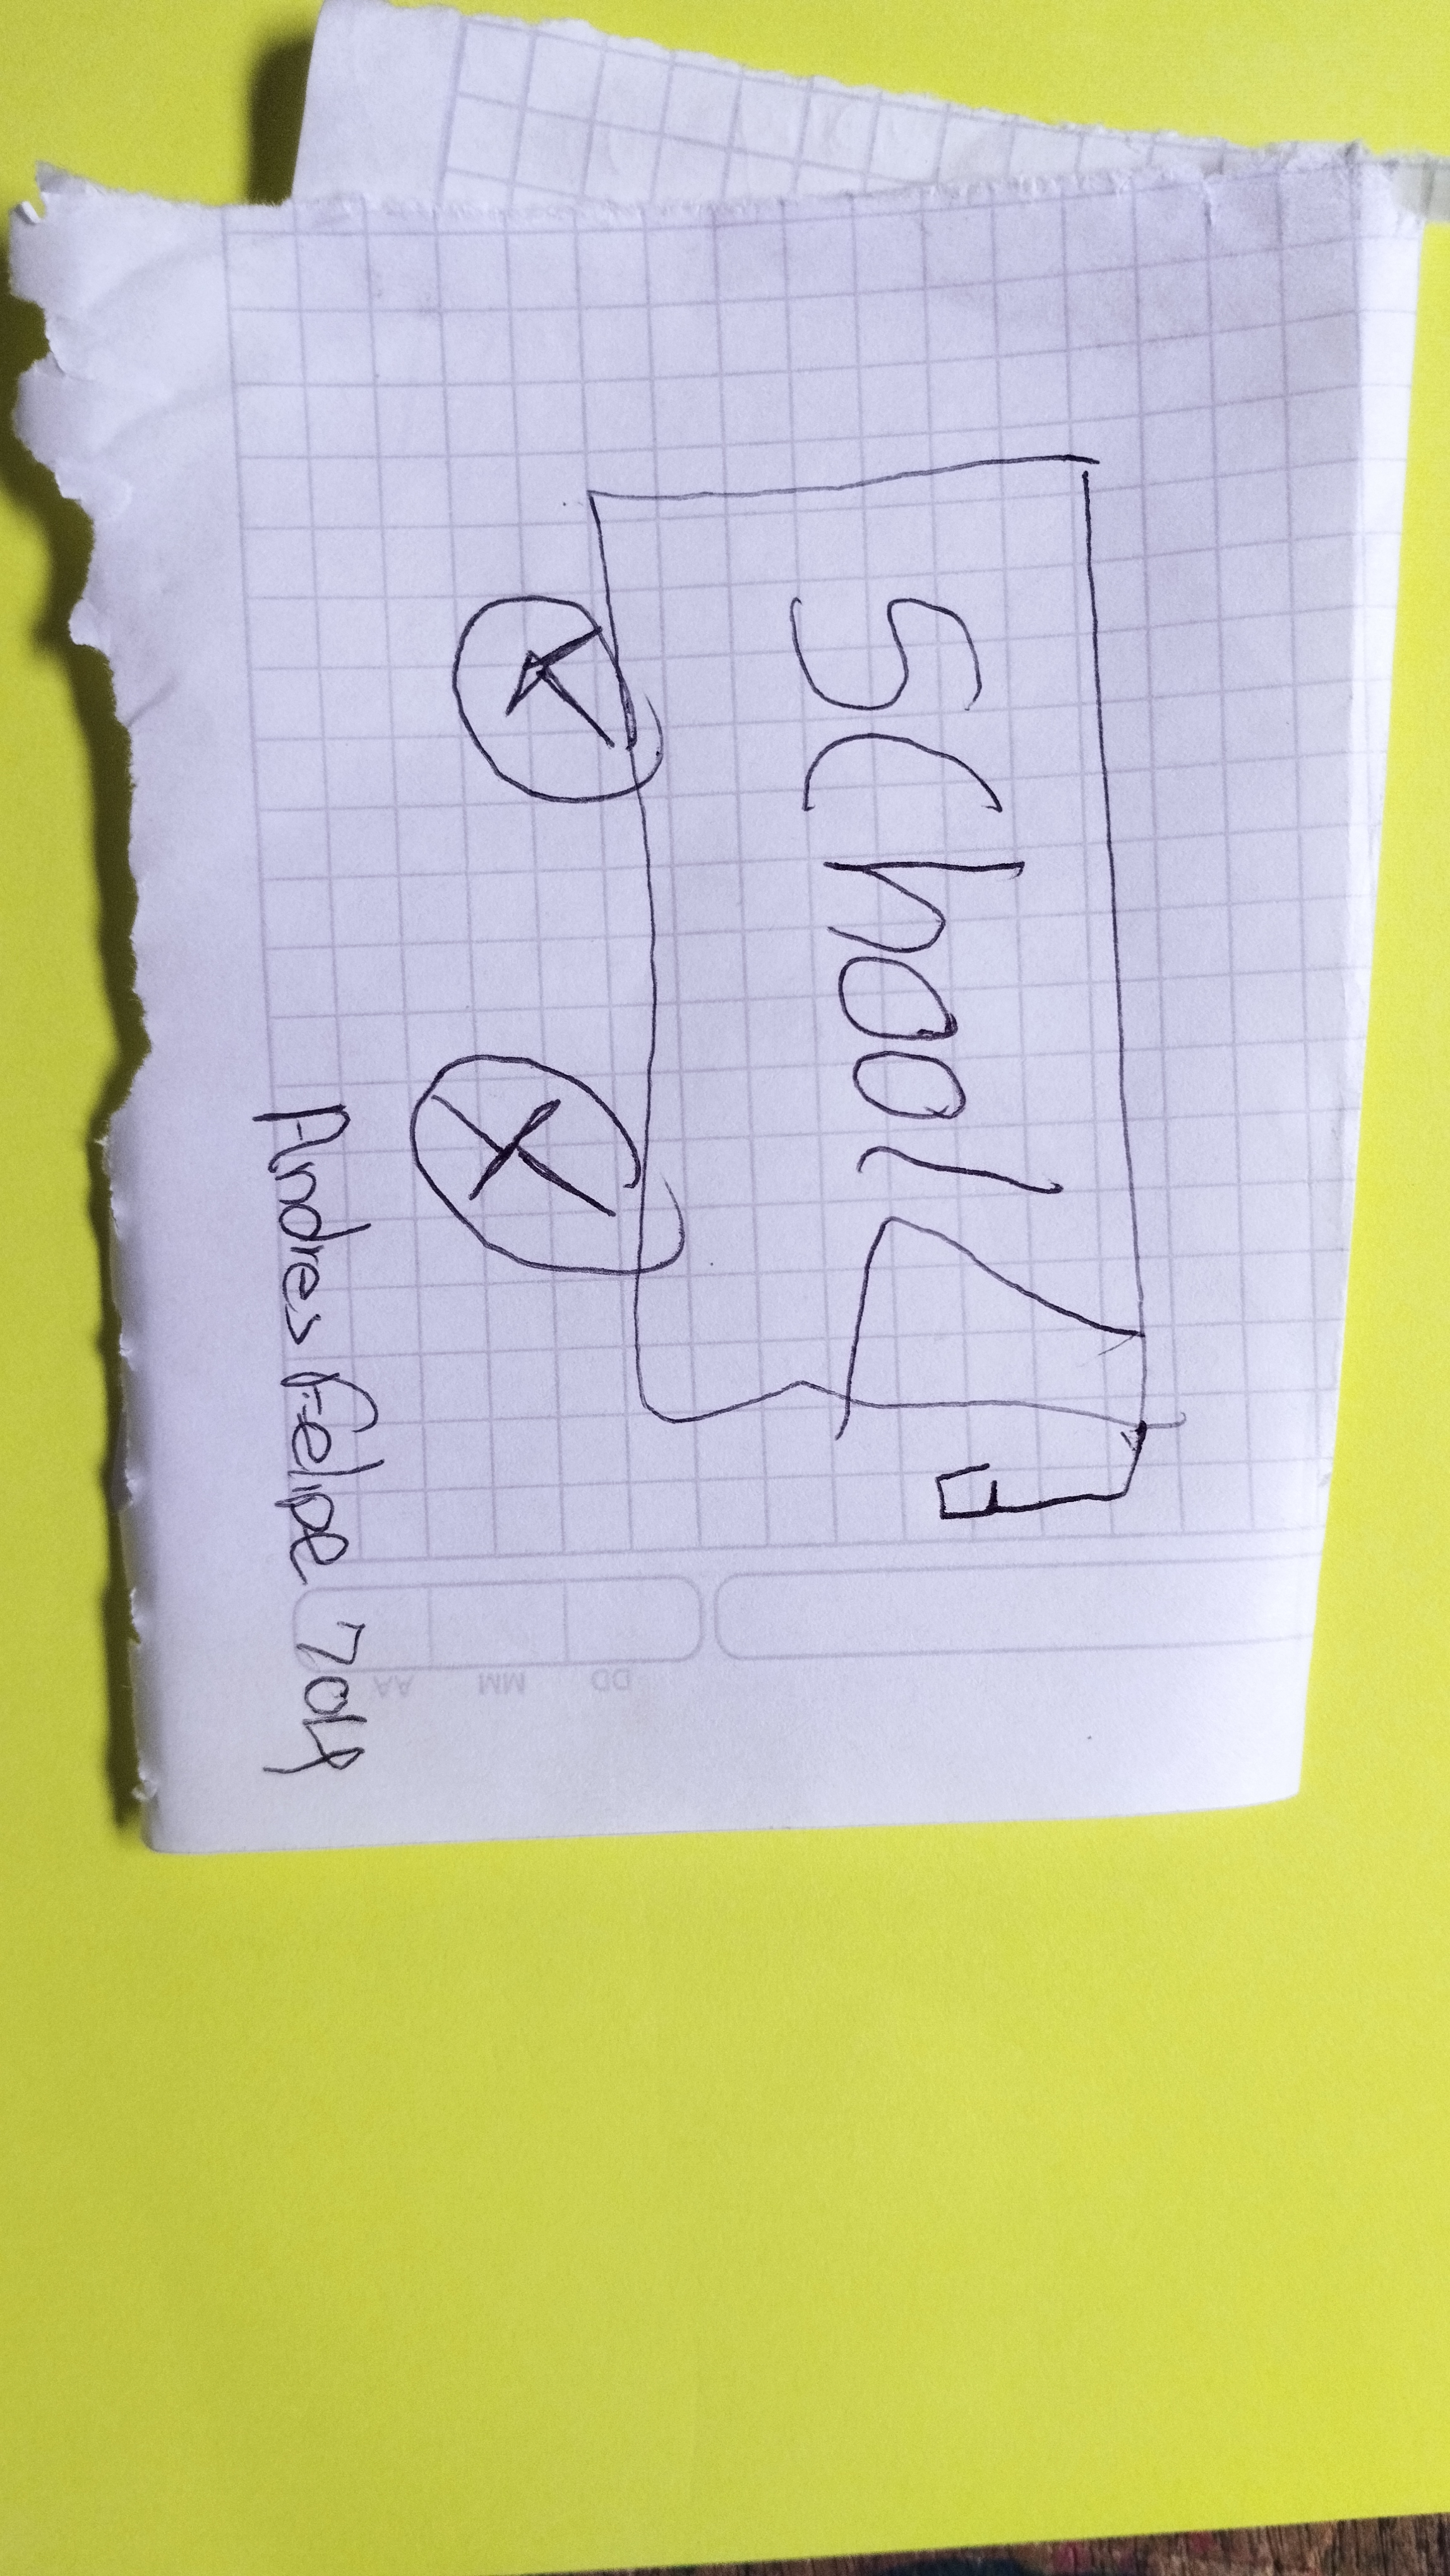 SChool
Andres Felipe 704
DD MM AA